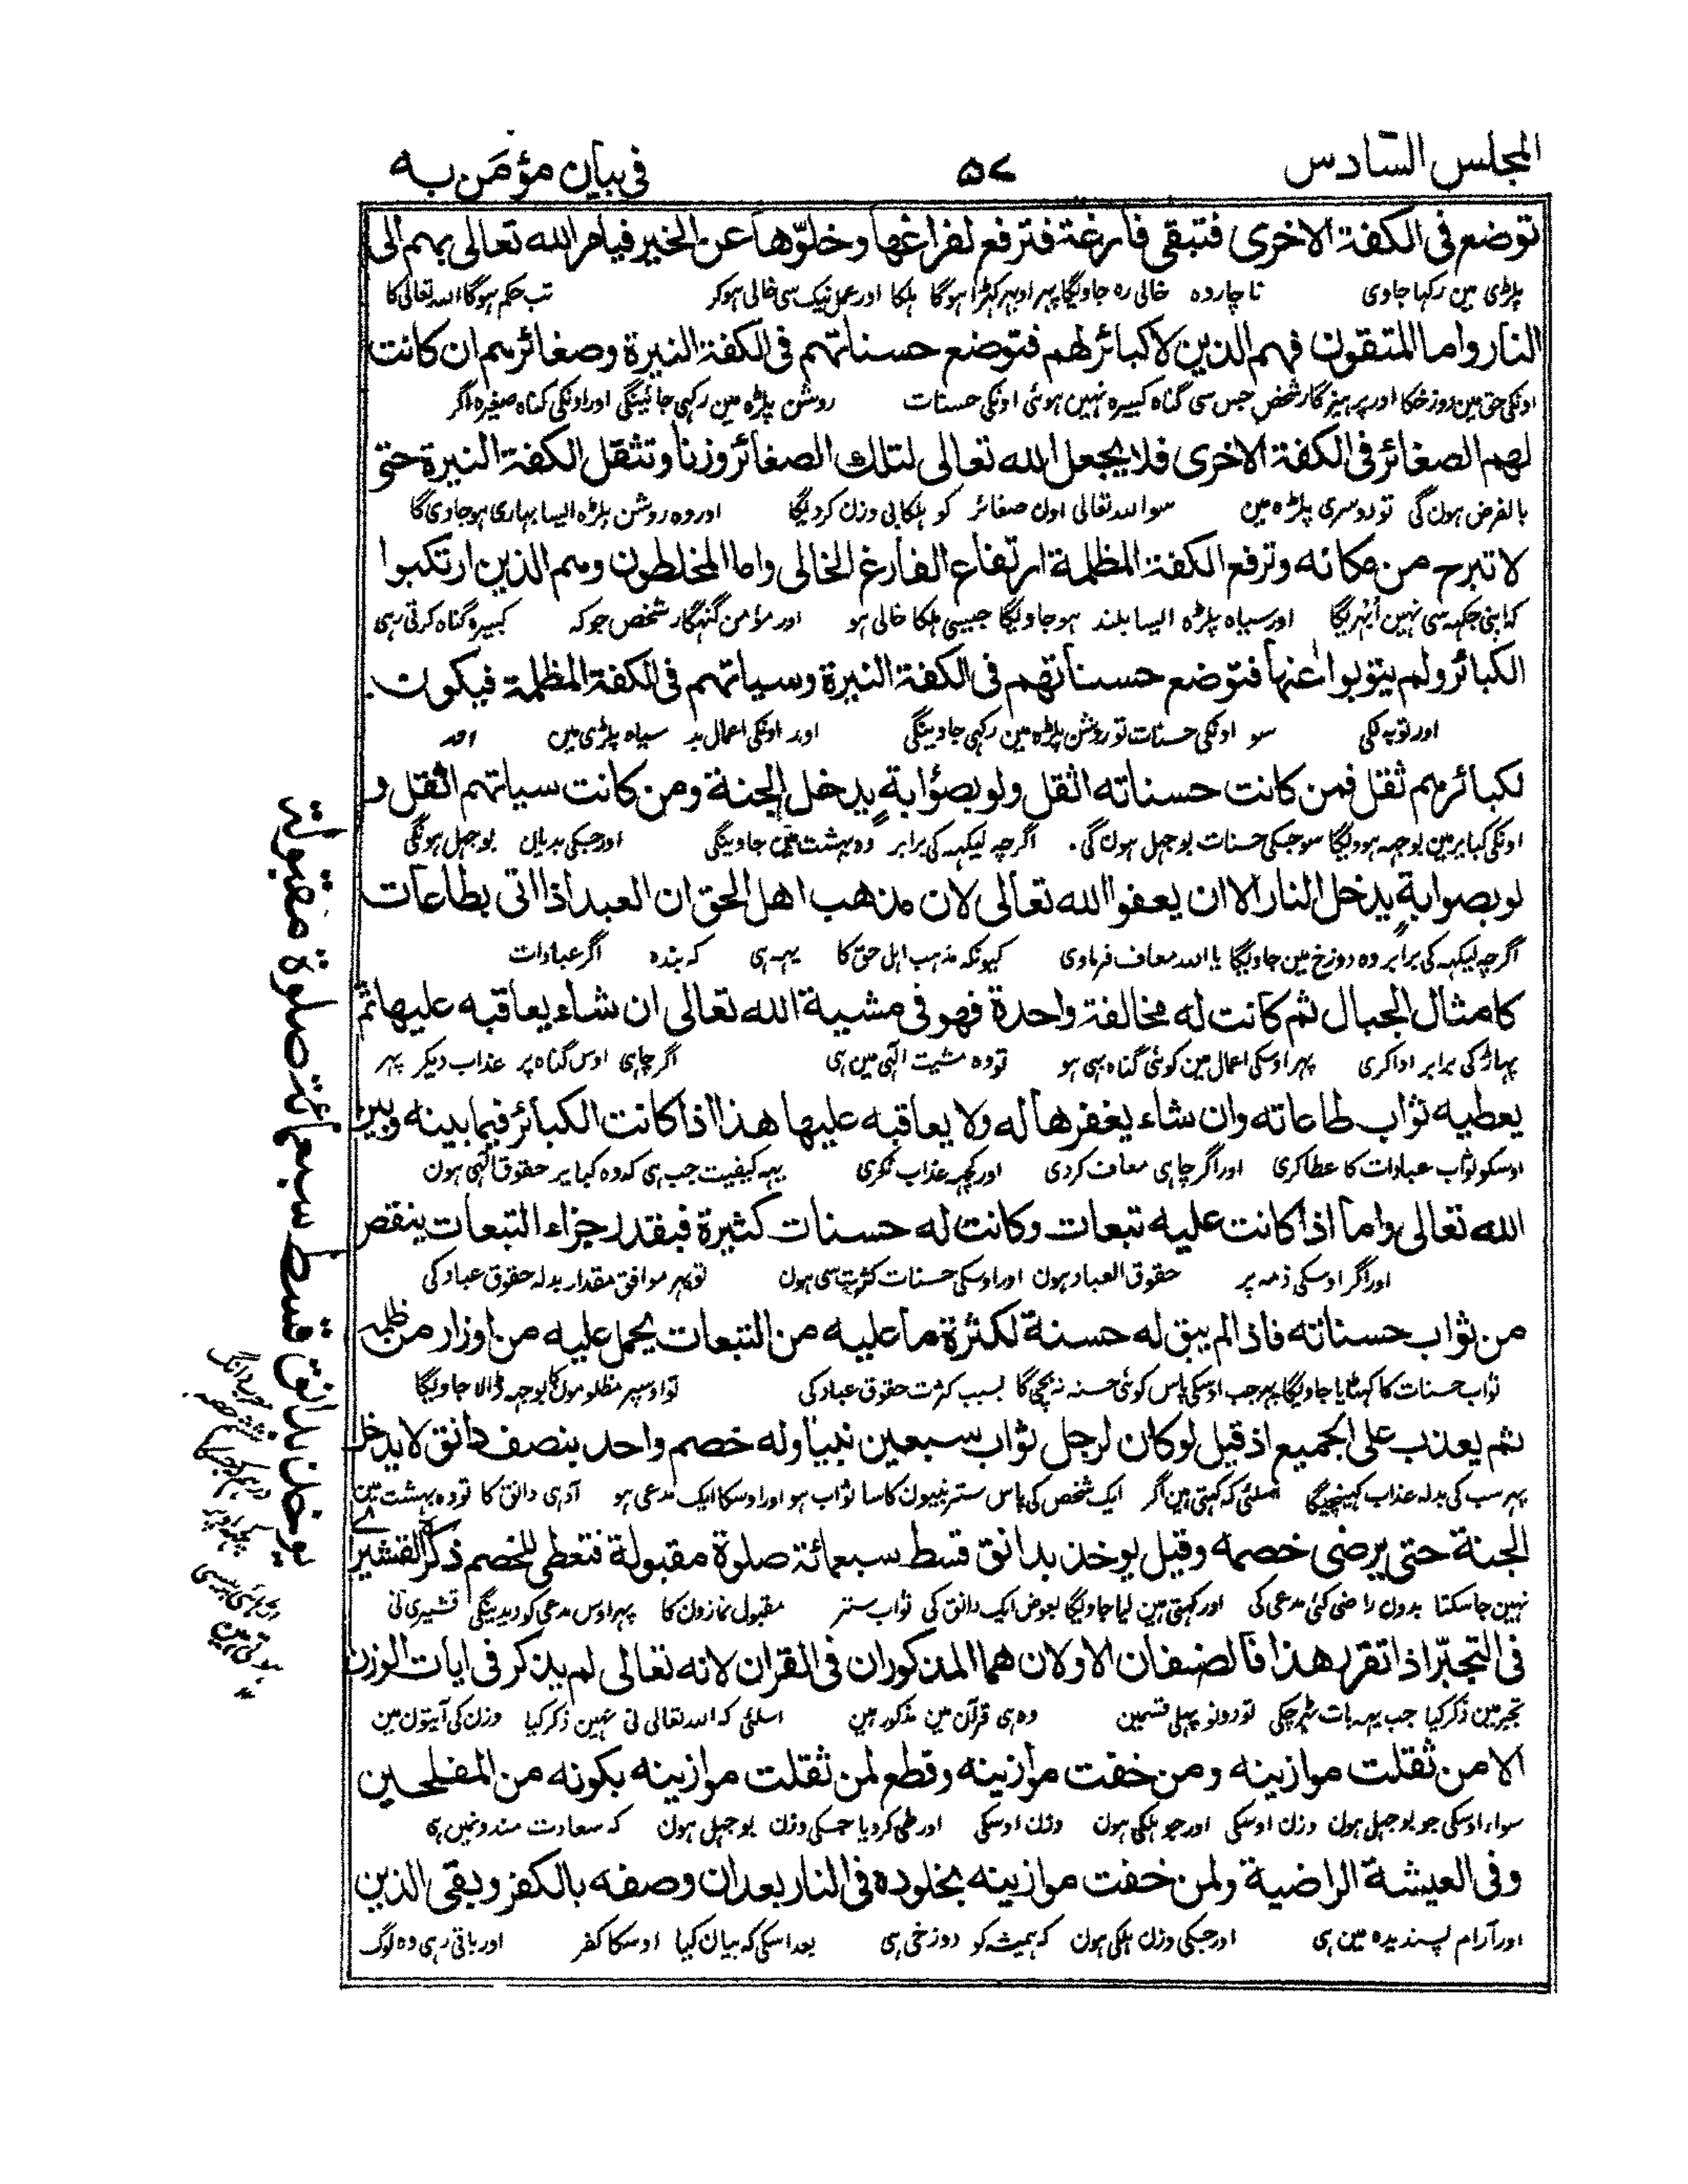 المجلس السادس
۵۷
فی بیان مؤمَن به
توضع فی الکفة الاخری فتبقی فارغة فترفع لفراغها وخلوّها عن الخیر فیامر الله تعالی بهم الی
پلڑی مین رکہا جاوی ناچار وہ خالی رہ جاویگا پہر اوبہر کہڑا ہوگا ہلکا اور عمل نیک سی خالی ہوکر تب حکم ہوگا اللہ تعالی کا
النار واما المتقون فهم الذین لا کبائر لهم فتوضع حسناتهم فی الکفة النیرة وصغائرهم ان کانت
اونکی حق مین دوزخکا اور پرہیزگار شخص جس سی گناہ کبیرہ نہین ہوئی اونکی حسنات روشن پلڑہ مین رکہی جائینگی اور اونکی گناہ صغیرہ اگر
لهم الصغائر فی الکفة الاخری فلا یجعل الله تعالی لتلك الصغائر وزنا وتثقل الکفة النیرة حتی
بالفرض ہون گی تو دوسری پلڑہ مین سو اللہ تعالی اون صغائر کو ہلکا بی وزن کردیگا اور وہ روشن پلڑہ ایسا بہاری ہوجاوی گا
لا تبرح من مکانه وترفع الکفة المظلمة ارتفاع الفارغ الخالی واما المخلطون وهم الذین ارتکبوا
کہ اپنی جگہہ سی نہین اُبہریگا اور سیاہ پلڑہ ایسا بلند ہوجاویگا جیسی ہلکا خالی ہو اور مؤمن گنہگار شخص جوکہ کبیرہ گناہ کرتی رہی
الکبائر ولم یتوبوا عنها فتوضع حسناتهم فی الکفة النیرة وسیاتهم فی الکفة المظلمة فیکون
اور توبہ نکی سو اونکی حسنات تو روشن پلڑہ مین رکہی جاوینگی اور اونکی اعمال بد سیاہ پلڑی مین اور
لکبائرهم ثقل فمن کانت حسناته اثقل ولو بصؤابةٍ یدخل الجنة ومن کانت سیاتهم اثقل و
اونکی کبایر مین بوجہہ ہوویگا سو جسکی حسنات بوجہل ہون گی اگرچہ لیکہہ کی برابر وہ بہشت مین جاوینگی اور جسکی بدیان بوجہل ہونگی
لو بصوابةٍ یدخل النار الا ان یعفو الله تعالی لان مذهب اهل الحق ان العبد اذا اتی بطاعات
اگرچہ لیکہہ کی برابر وہ دوزخ مین جاویگا یا اللہ معاف فرماوی کیونکہ مذہب اہل حق کا یہہ ہی کہ بندہ اگر عبادات
کامثال الجبال ثم کانت له مخالفة واحدة فهو فی مشیة الله تعالی ان شاء یعاقبه علیها ثم
پہاڑ کی برابر ادا کری پہر اوسکی اعمال مین کوئی گناہ بہی ہو تو وہ مشیت الٰہی مین ہی اگر چاہی اوس گناہ پر عذاب دیکر پہر
یعطیه ثواب طاعاته وان شاء یغفرها له ولا یعاقبه علیها هذا اذا کانت الکبائر فیما بینه وبین
اوسکو ثواب عبادات کا عطا کری اور اگر چاہی معاف کردی اور کچہہ عذاب نکری یہہ کیفیت جب ہی کہ وہ کبایر حقوق الٰہی ہون
الله تعالی واما اذا کانت علیه تبعات وکانت له حسنات کثیرة فبقدر جزاء التبعات ینقص
اور اگر اوسکی ذمہ پر حقوق العباد ہون اور اوسکی حسنات کثرت سی ہون تو پہر موافق مقدار بدلہ حقوق عباد کی
من ثواب حسناته فاذا لم یبق له حسنة لکثرة ما علیه من التبعات یحمل علیه من اوزار من ظلمه
ثواب حسنات کا کہٹایا جاویگا پہر جب اوسکی پاس کوئی حسنہ نہ بچی گا بسبب کثرت حقوق عباد کی تو اوسپر مظلومون کا بوجہہ ڈالا جاویگا
ثم یعذب علی الجمیع اذ قیل لو کان لرجل ثواب سبعین نبیا وله خصم واحد بنصف دانق لا یدخل
پہر سب کی بدلہ عذاب کہینچیگا اسلئی کہ کہتی ہین اگر ایک شخص کی پاس ستر نبیون کا سا ثواب ہو اور اوسکا ایک مدعی ہو آدہی دانق کا تو وہ بہشت مین
الجنة حتی یرضی خصمه وقیل یوخذ بدانق قسط سبعمائة صلوة مقبولة فتعطی للخصم ذکره القشیری
نہین جاسکتا بدون راضی کئی مدعی کی اور کہتی ہین لیا جاویگا بعوض ایک دانق کی ثواب ستر مقبول نمازون کا پہر اوس مدعی کو دیدینگی قشیری نی
فی التحبّر اذا تقرر هذا فالصنفان الاولان هما المذکوران فی القران لانه تعالی لم یذکر فی ایات الوزن
تحبیر مین ذکر کیا جب یہہ بات ٹہر چکی تو دونو پہلی قسمین وہ ہی قرآن مین مذکور ہین اسلئی کہ اللہ تعالی نی نہین ذکر کیا وزن کی آیتون مین
الا من ثقلت موازینه ومن خفت موازینه وقطع لمن ثقلت موازینه بکونه من المفلحین
سواء اوسکی جو بوجہل ہون وزن اوسکی اور جو ہلکی ہون وزن اوسکی اور طی کردیا جسکی وزن بوجہل ہون کہ سعادت مندونمین ہی
وفی العیشة الراضیة ولمن خفت موازینه بخلوده فی النار بعد ان وصفه بالکفر وبقی الذین
اور آرام پسندیدہ مین ہی اور جسکی وزن ہلکی ہون کہ ہمیشہ کو دوزخی ہی بعد اسکی کہ بیان کیا اوسکا کفر اور باقی رہی وہ لوگ
یوخذ بدانق قسط سبعمائة صلوة مقبولة